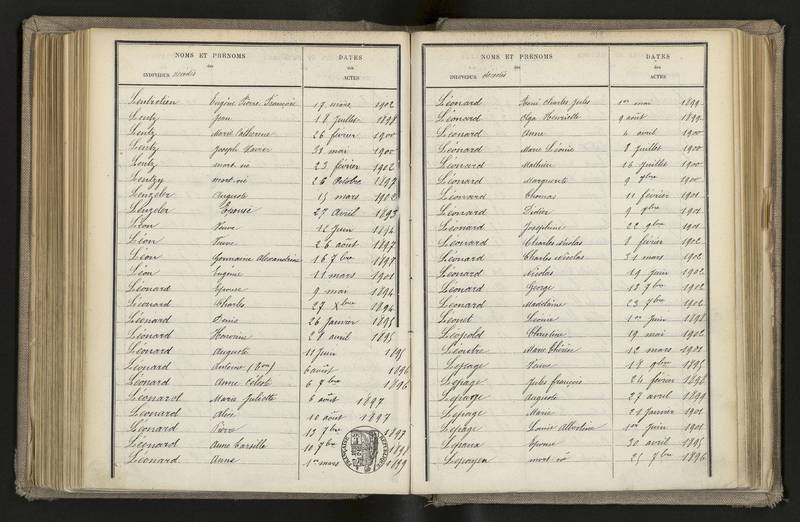 NOMS ET PRÉNOMS DATES
des des
INDIVIDUS décédés ACTES
Lentretien Eugène Pierre François 17 mars 1902
Lentz Jean 18 juillet 1898
Lentz Marie Catherine 26 février 1900
Lentz Joseph Xavier 31 mai 1900
Lentz mort-né 23 février 1902
Lentzy mort-né 26 octobre 1897
Lenzeler Auguste 15 mars 1902
Lenzeler Epouse 27 avril 1893
Léon Veuve 12 juin 1894
Léon 26 août 1897
Léon Germaine Alexandrine 16 7bre 1897
Léon Eugénie 18 mars 1901
Léonard Epouse 9 mai 1894
Léonard Charles 27 Xbre 1894
Léonard Denis 26 janvier 1895
Léonard Honorine 28 avril 1895
Léonard Auguste 11 juin 1895
Léonard Antoine 6 août 1896
Léonard Anne Céleste 6 7bre 1896
Léonard Marie Juliette 6 août 1897
Léonard 10 août 1897
Léonard 13 7bre 1897
Léonard Anne 10 7bre 1898
Léonard Anne 1er mars 1899
NOMS ET PRÉNOMS DATES
des des
INDIVIDUS décédés ACTES
Léonard René Charles Jules 1er mai 1899
Léonard Olga Henriette 9 août 1899
Léonard Anne 4 avril 1900
Léonard Marie Léonie 8 juillet 1900
Léonard Mathieu 16 juillet 1900
Léonard Marguerite 9 7bre 1900
Léonard Thomas 11 février 1901
Léonard Didier 9 9bre 1901
Léonard Joséphine 22 9bre 1901
Léonard Charles Nicolas 8 février 1902
Léonard Charles Nicolas 31 mars 1902
Léonard Nicolas 19 juin 1902
Léonard George 13 7bre 1902
Léonard Madelaine 23 7bre 1902
Léonet Léonie 1er juin 1898
Léopold Christine 19 mai 1902
Léautre Marie Thérèse 12 mars 1901
Lepage Veuve 18 9bre 1895
Lepage Jules François 24 février 1898
Lepage Auguste 27 avril 1899
Lepage Marie 21 janvier 1901
Lepage Louise Albertine 1er juin 1901
Lepaux Epouse 30 avril 1895
Lepayen mort-né 25 7bre 1896